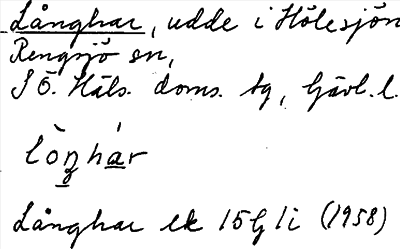 Långhar, udde i Hölesjön
Rengsjö sn,
S Ö. Häls. doms. tg, Gävl. l.
lòn̲há̲r
Långhar ek 15G 1i (1958)